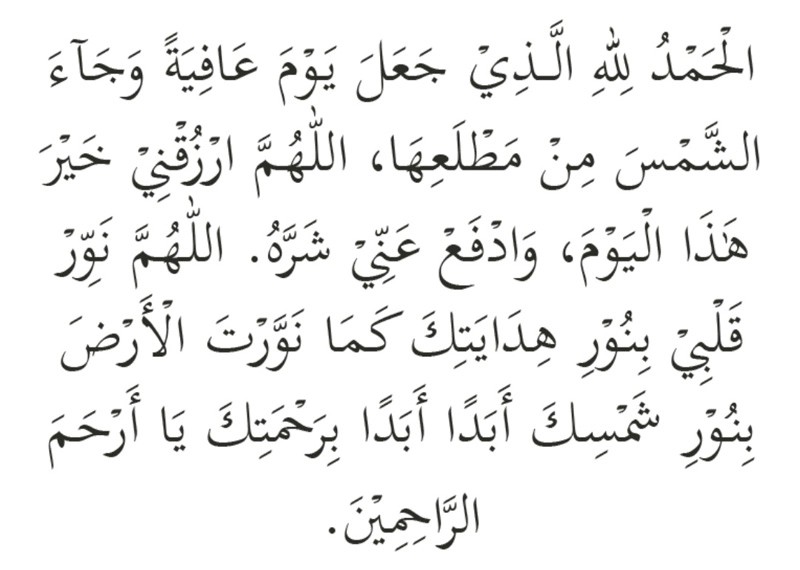 الْحَمْدُ لِلّٰهِ الَّـذِيْ جَعَلَ يَوْمَ عَافِيَةً وَجَآءَ
الشَّمْسَ مِنْ مَطْلَعِهَا، اللّٰهُمَّ ارْزُقْنِيْ خَيْرَ
هٰذَا الْيَوْمَ، وَادْفَعْ عَنِّيْ شَرَّهُ. اللّٰهُمَّ نَوِّرْ
قَلْبِيْ بِنُوْرِ هِدَايَتِكَ كَمَا نَوَّرْتَ الْأَرْضَ
بِنُوْرِ شَمْسِكَ أَبَدًا أَبَدًا بِرَحْمَتِكَ يَا أَرْحَمَ
الرَّاحِمِيْنَ.